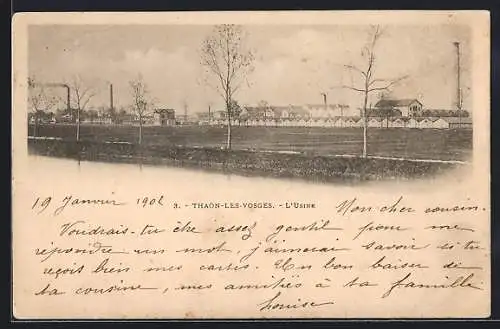 19 Janvier 1902
3. - THAON-LES-VOSGES. - L'USINE
Mon cher cousin.
Voudrais-tu être assez gentil pour me
répondre un mot, j'aimerai savoir si tu
reçoit bien mes cartes. Un bon baiser de
ta cousine, mes amitiés à ta famille
Louise